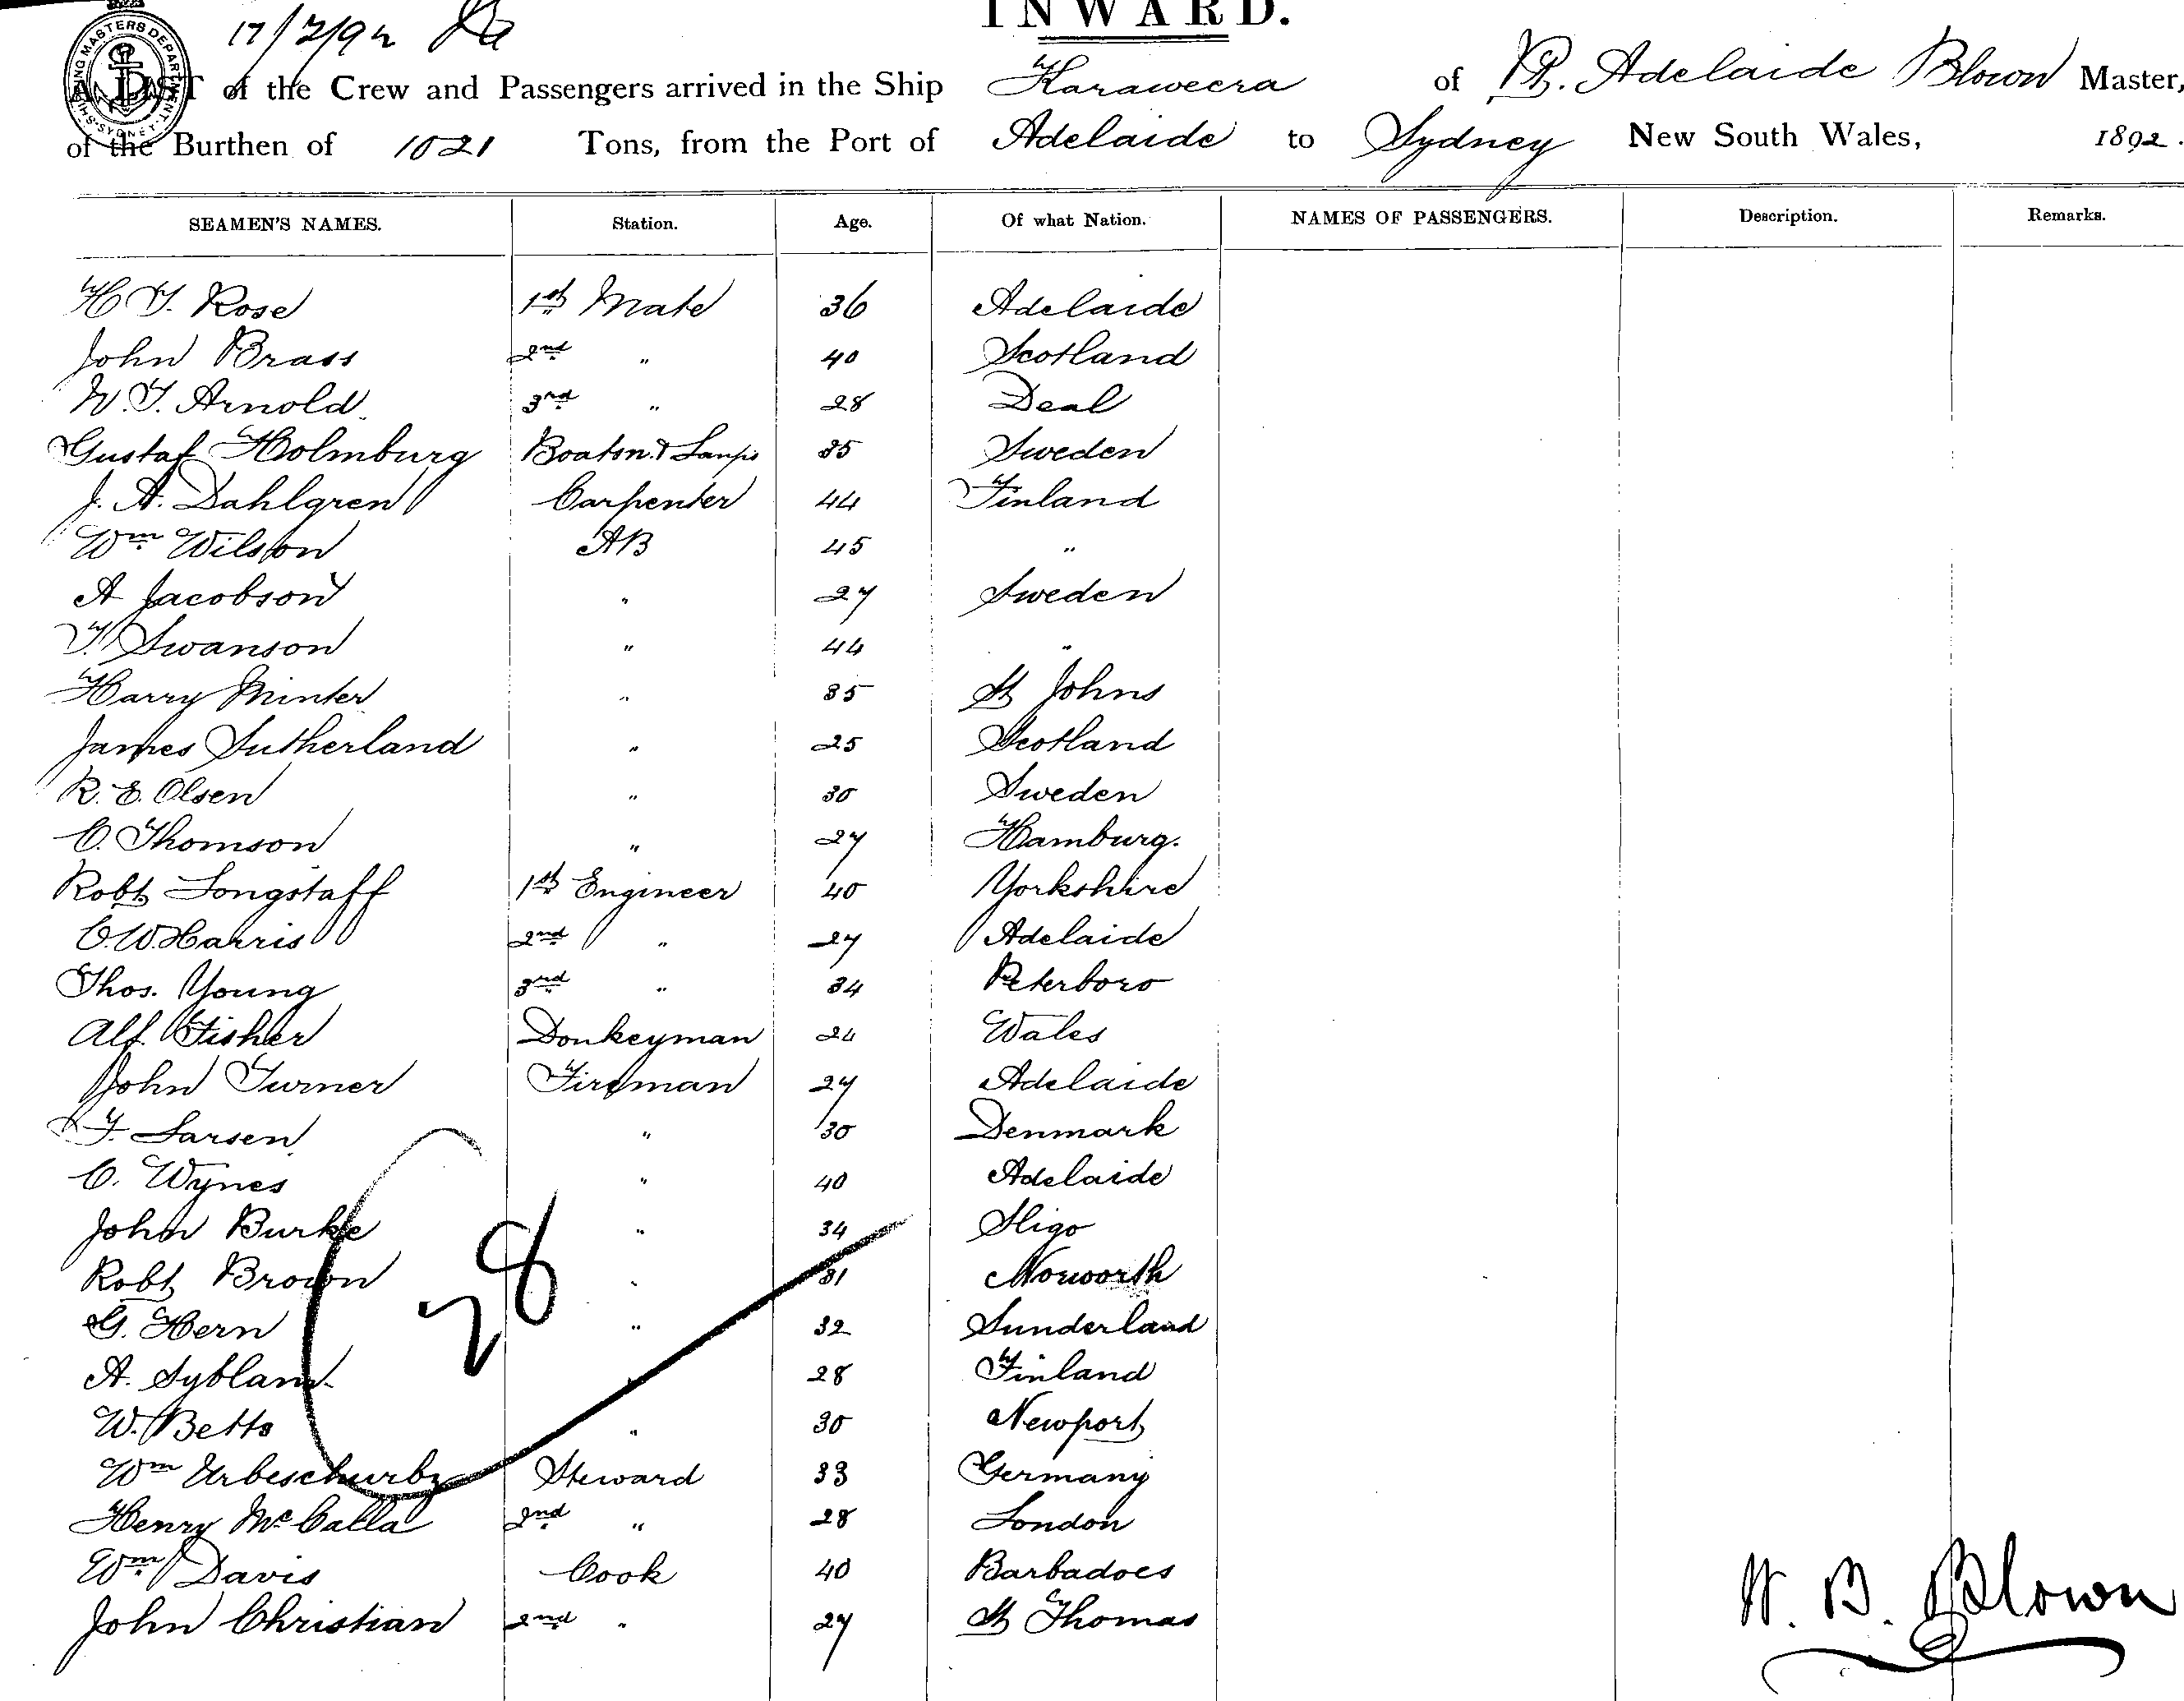 INWARD.
17/2/92
SHIPPING MASTERS DEPARTMENT SYDNEY
A LIST of the Crew and Passengers arrived in the Ship Karaweera of Pt. Adelaide Blown Master,
of the Burthen of 1021 Tons, from the Port of Adelaide to Sydney New South Wales, 1892.
SEAMEN'S NAMES. Station. Age. Of what Nation. NAMES OF PASSENGERS. Description. Remarks.
H T. Rose 1st Mate 36 Adelaide
John Brass 2nd " 40 Scotland
W. T. Arnold 3rd " 28 Deal
Gustaf Holmburg Boatsn. & Lamps 35 Sweden
J. A. Dahlgren Carpenter 44 Finland
Wm Wilson AB 45 "
A Jacobson " 27 Sweden
T. Swanson " 44 "
Harry Minter " 35 St Johns
James Sutherland " 25 Scotland
R. E. Olsen " 30 Sweden
C. Thomson " 27 Hamburg.
Robt Longstaff 1st Engineer 40 Yorkshire
C. W. Harris 2nd " 27 Adelaide
Thos. Young 3rd " 34 Peterboro
Alf. Fisher Donkeyman 24 Wales
John Turner Fireman 27 Adelaide
F. Larsen " 30 Denmark
C. Wynes " 40 Adelaide
John Burke " 34 Sligo
Robt Brown " 31 Noworth
G. Hern " 32 Sunderland
28
A. Syblam " 28 Finland
W. Betts " 30 Newport
Wm Steward 33 Germany
Henry McCalla 2nd " 28 London
Wm Davis Cook 40 Barbadoes
John Christian 2nd " 27 St Thomas
W. B. Blown